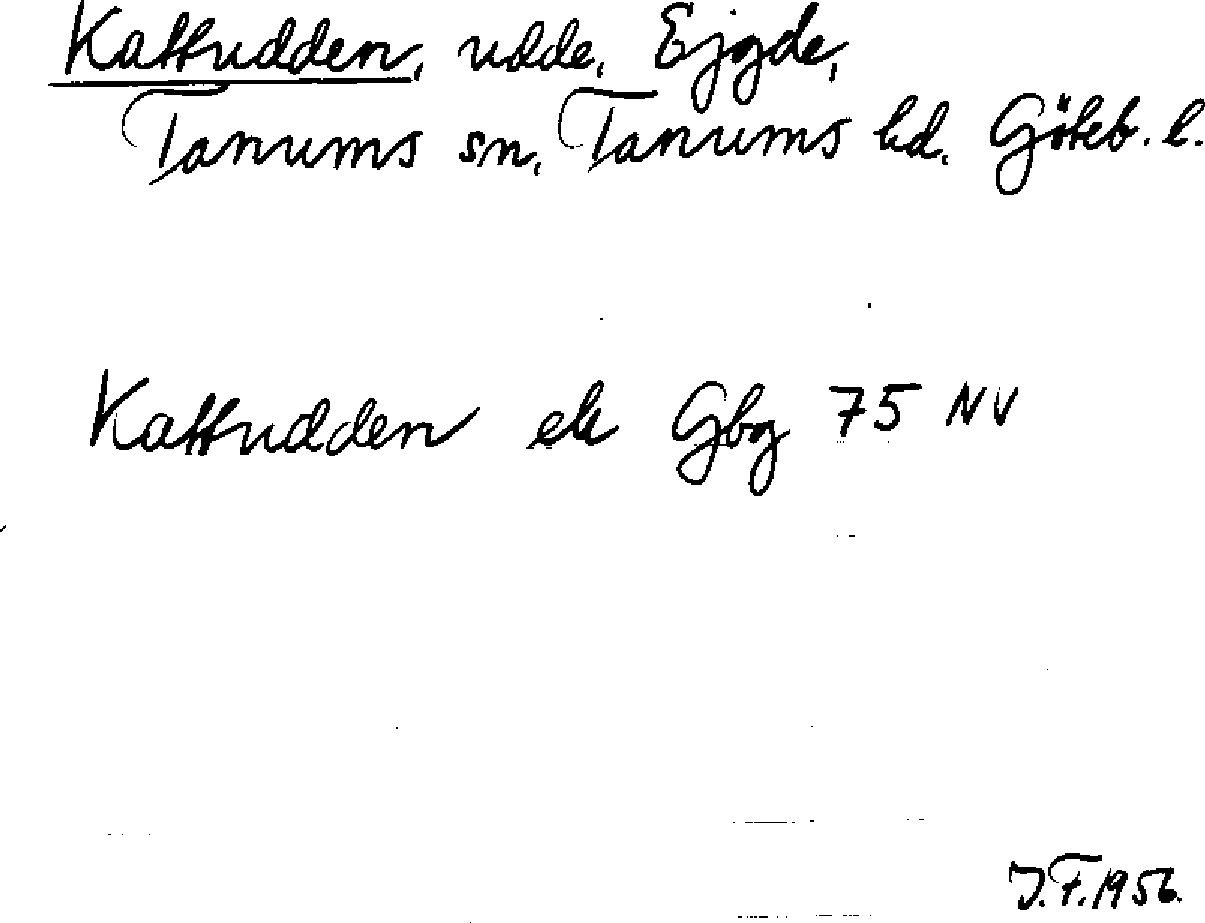 Kattudden, udde, Ejgde,
Tanums sn, Tanums hd. Göteb. l.
Kattudden ek Gbg 75 NV
J.F.1956.